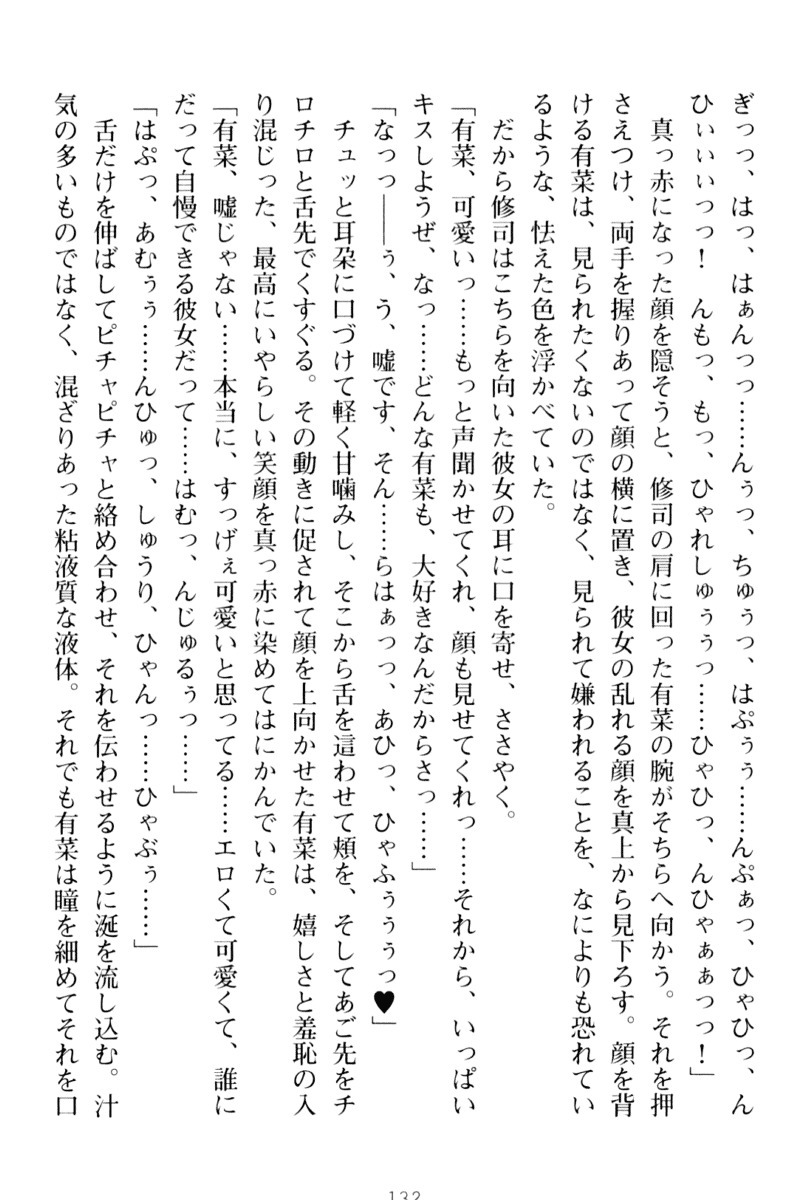 ぎっっ、はっ、はぁんっっ……んぅっ、ちゅぅっ、はぷぅぅ……んぷぁっ、ひゃひっ、ん
ひぃぃぃっっ！　んもっ、もっ、ひゃれしゅぅぅっ……ひゃひっ、んひゃぁぁっっ！」
　真っ赤になった顔を隠そうと、修司の肩に回った有菜の腕がそちらへ向かう。それを押
さえつけ、両手を握りあって顔の横に置き、彼女の乱れる顔を真上から見下ろす。顔を背
ける有菜は、見られたくないのではなく、見られて嫌われることを、なによりも恐れてい
るような、怯えた色を浮かべていた。
　だから修司はこちらを向いた彼女の耳に口を寄せ、ささやく。
「有菜、可愛いっ……もっと声聞かせてくれ、顔も見せてくれっ……それから、いっぱい
キスしようぜ、なっ……どんな有菜も、大好きなんだからさっ……」
「なっっ――ぅ、う、嘘です、そん……らはぁっっ、あひっ、ひゃふぅぅぅっ♥」
　チュッと耳朶に口づけて軽く甘噛みし、そこから舌を這わせて頬を、そしてあご先をチ
ロチロと舌先でくすぐる。その動きに促されて顔を上向かせた有菜は、嬉しさと羞恥の入
り混じった、最高にいやらしい笑顔を真っ赤に染めてはにかんでいた。
「有菜、嘘じゃない……本当に、すっげぇ可愛いと思ってる……エロくて可愛くて、誰に
だって自慢できる彼女だって……はむっ、んじゅるぅっ……」
「はぷっ、あむぅぅ……んひゅっ、しゅうり、ひゃんっ……ひゃぶぅ……」
　舌だけを伸ばしてピチャピチャと絡め合わせ、それを伝わせるように涎を流し込む。汁
気の多いものではなく、混ざりあった粘液質な液体。それでも有菜は瞳を細めてそれを口
132